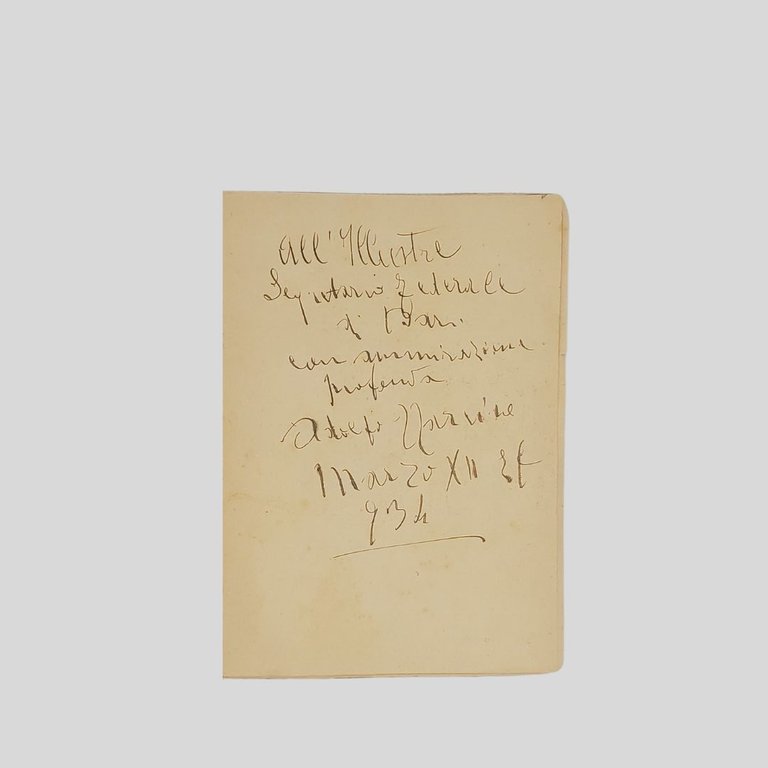 All'Illustre
Segretario Federale
di Bari
con ammirazione
profonda
Adolfo
Marzo XII EF
934